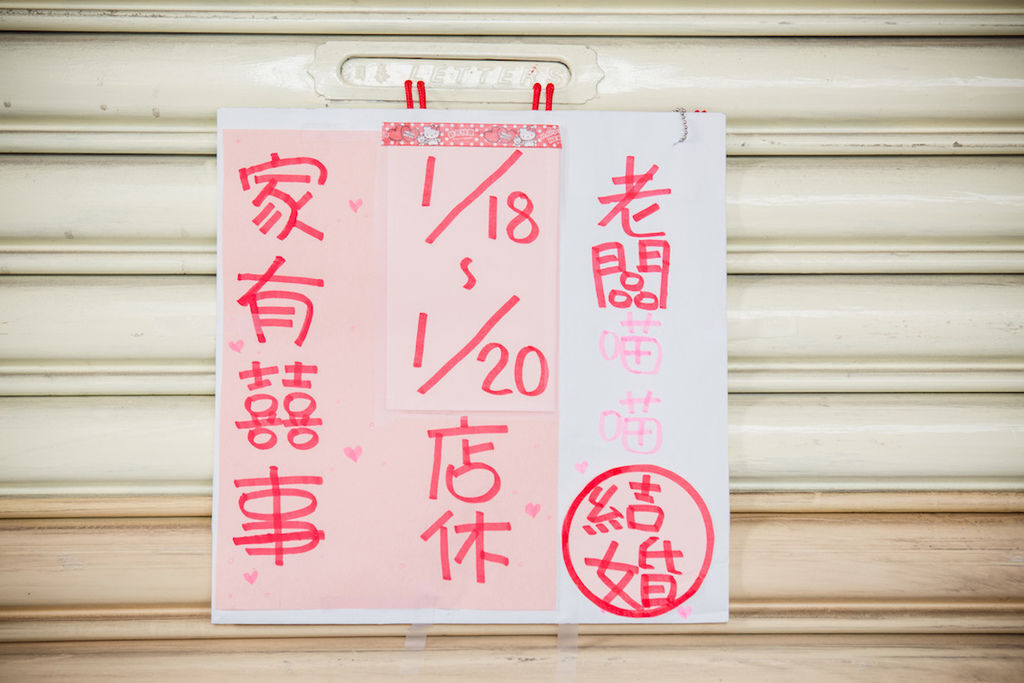 LETTERS
老闆喵喵
結婚
1/18
~
1/20
店休
家有囍事